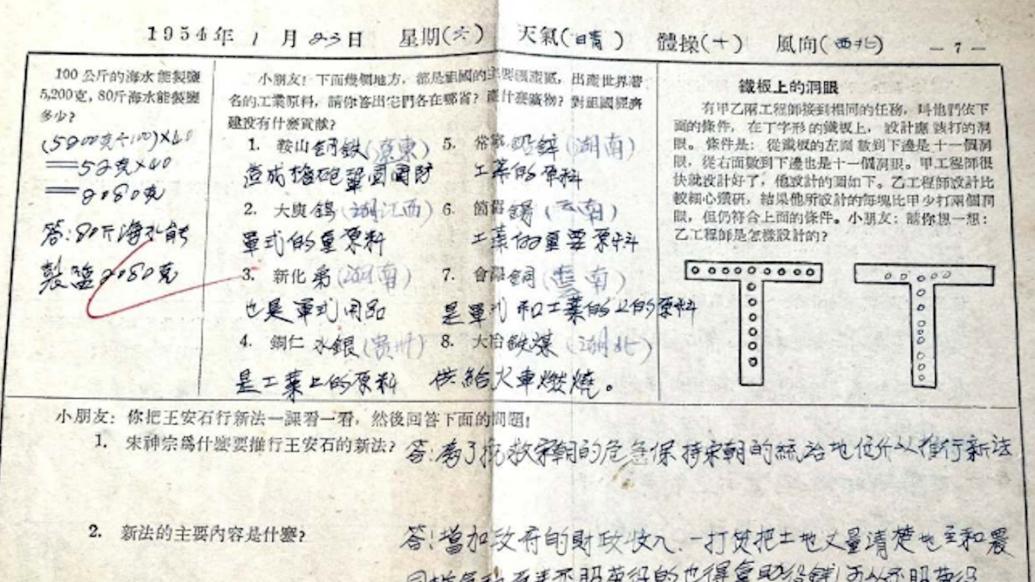 1954年 1 月 23日 星期(六) 天氣(晴) 體操(十) 風向(西北) — 7 —
100公斤的海水能製鹽
5,200克,80斤海水能製鹽
多少?
(5200克÷100)×40
=52克×40
=2080克
答:80斤海水能
製塩2080克
小朋友!下面幾個地方,都是祖國的主要礦產區,出產世界著
名的工業原料,請你答出它們各在哪省?產什麼礦物?對祖國經濟
建設有什麼貢獻?
1. 鞍山 鋼鉄(東)
造成槍砲鞏固國防
2. 大庾 鎢(江西)
軍式的重原料
3. 新化 (湖南)
也是軍式用品
4. 銅仁 水銀(贵州)
是工業上的原料
5. 常寧 鋅(湖南)
工業的原料
6. 箇舊 錫(云南)
工業的重要原料
7. 會澤 銅(雲南)
是軍式和工業的上的原料
8. 大冶 鉄煤(湖北)
供給火車燃燒。
鐵板上的洞眼
有甲乙兩工程師接到相同的任務,叫他們依下
面的條件,在丁字形的鐵板上,設計應該打的洞
眼。條件是:從鐵板的左面數到下邊是十一個洞
眼,從右面數到下邊也是十一個洞眼。甲工程師很
快就設計好了,他設計的圖如下。乙工程師設計比
較細心鑽研,結果他所設計的每塊比甲少打兩個洞
眼,但仍符合上面的條件。小朋友:請你想一想:
乙工程師是怎樣設計的?
小朋友:你把王安石行新法一課看一看,然後回答下面的問題!
1. 宋神宗爲什麼要推行王安石的新法? 答:為了挽救宋朝的危急保持宋朝的統治地位所以推行新法
2. 新法的主要內容是什麼? 答:增加政府的財政收入.一打 把土地丈量清楚地主和農